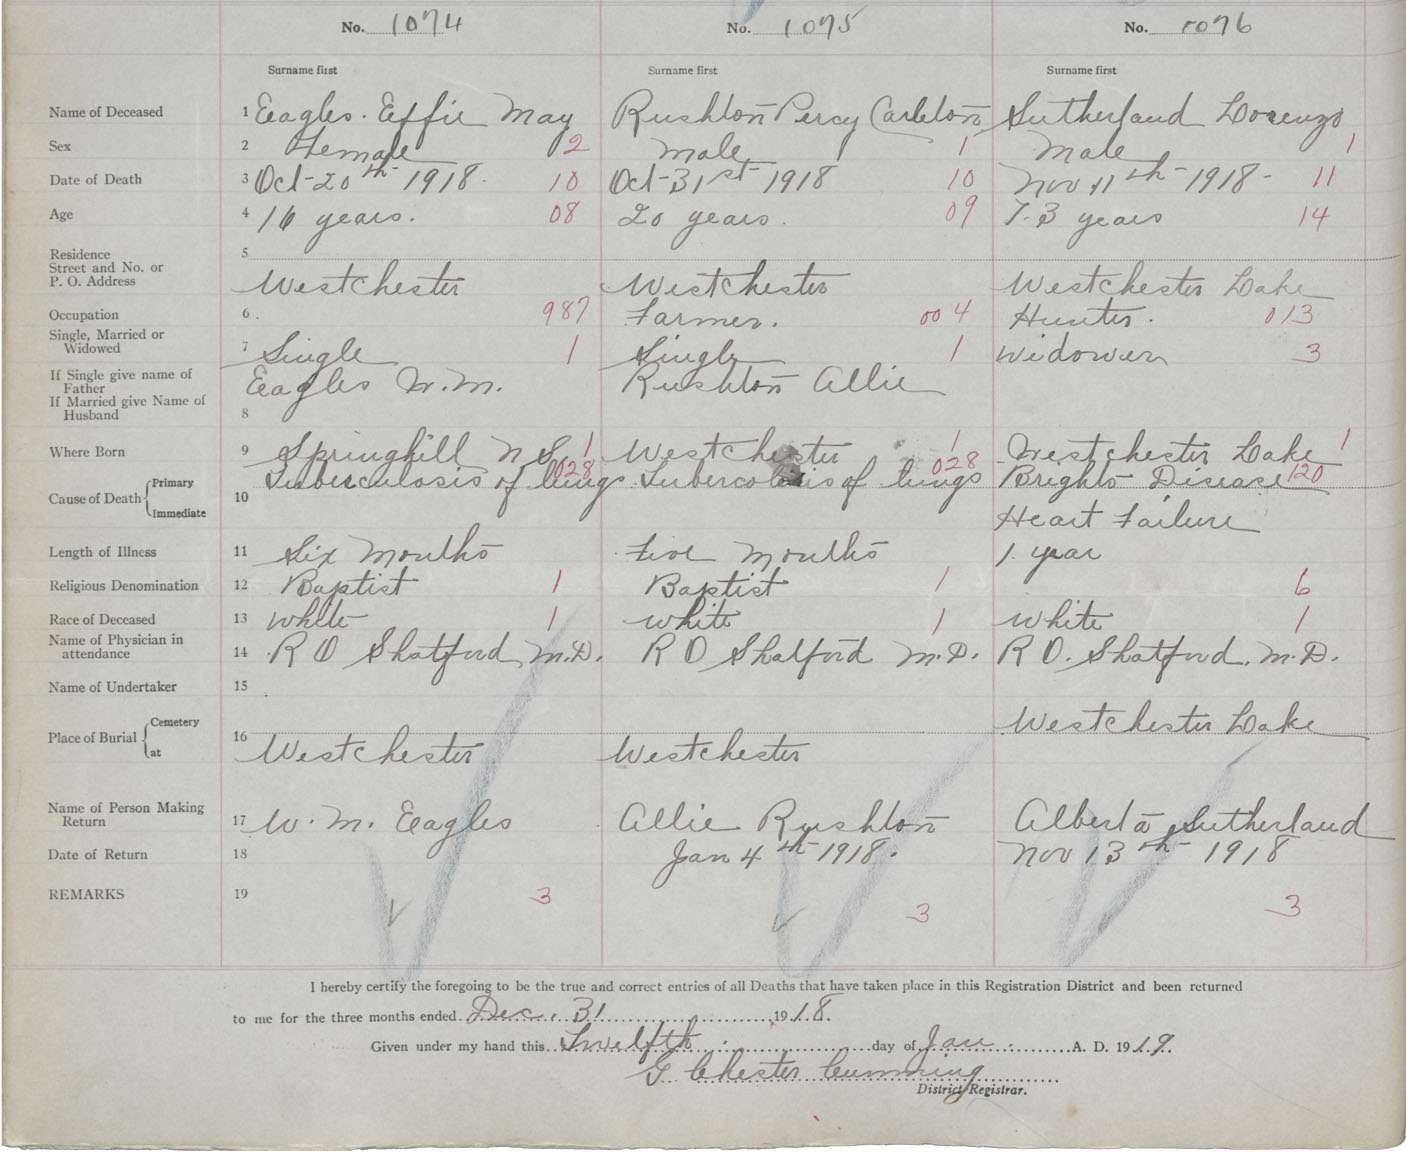 No. 1074 No. 1075 No. 1076
Surname first Surname first Surname first
Name of Deceased 1 Eagles. Effie May Rushton Percy Carleton Sutherland Lorenzo
Sex 2 Female 2 male 1 Male 1
Date of Death 3 Oct-20th 1918. 10 Oct-31st 1918 10 Nov 11th-1918- 11
Age 4 16 years. 08 20 years. 09 73 years 14
Residence
Street and No. or
P. O. Address 5 Westchester Westchester Westchester Lake
Occupation 6 987 Farmer. 004 Hunter. 013
Single, Married or
Widowed 7 Single 1 Single 1 Widower 3
If Single give name of
Father Eagles W.M. Rushton Allie
If Married give Name of
Husband 8
Where Born 9 Springhill N S. 1 Westchester 1 Westchester Lake 1
Cause of Death Primary 10 Tuberculosis of lungs 028 Tubercolosis of lungs 028 Brights Disease 120
Immediate Heart Failure
Length of Illness 11 Six Months Five Months 1. year
Religious Denomination 12 Baptist 1 Baptist 1 6
Race of Deceased 13 white 1 white 1 white 1
Name of Physician in
attendance 14 R O Shatford M.D. R O Shatford M.D. R O. Shatford. M.D.
Name of Undertaker 15
Place of Burial Cemetery 16 Westchester Lake
at Westchester Westchester
Name of Person Making
Return 17 W. M. Eagles Allie Rushton Alberta Sutherland
Date of Return 18 Jan 4th 1918. Nov 13th- 1918
REMARKS 19 3 3 3
I hereby certify the foregoing to be the true and correct entries of all Deaths that have taken place in this Registration District and been returned
to me for the three months ended Dec. 31 1918.
Given under my hand this Twelfth day of Jan. A. D. 1919.
G Chester Cumming
District Registrar.